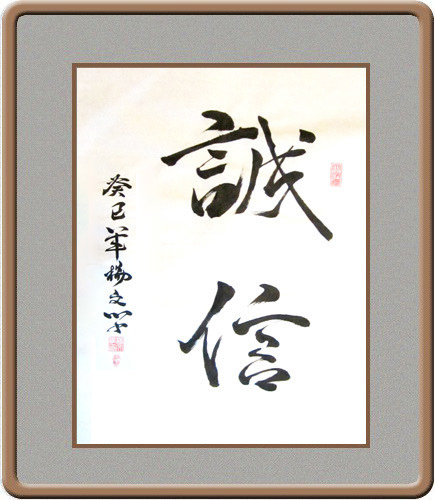 誠信
癸巳年楊文